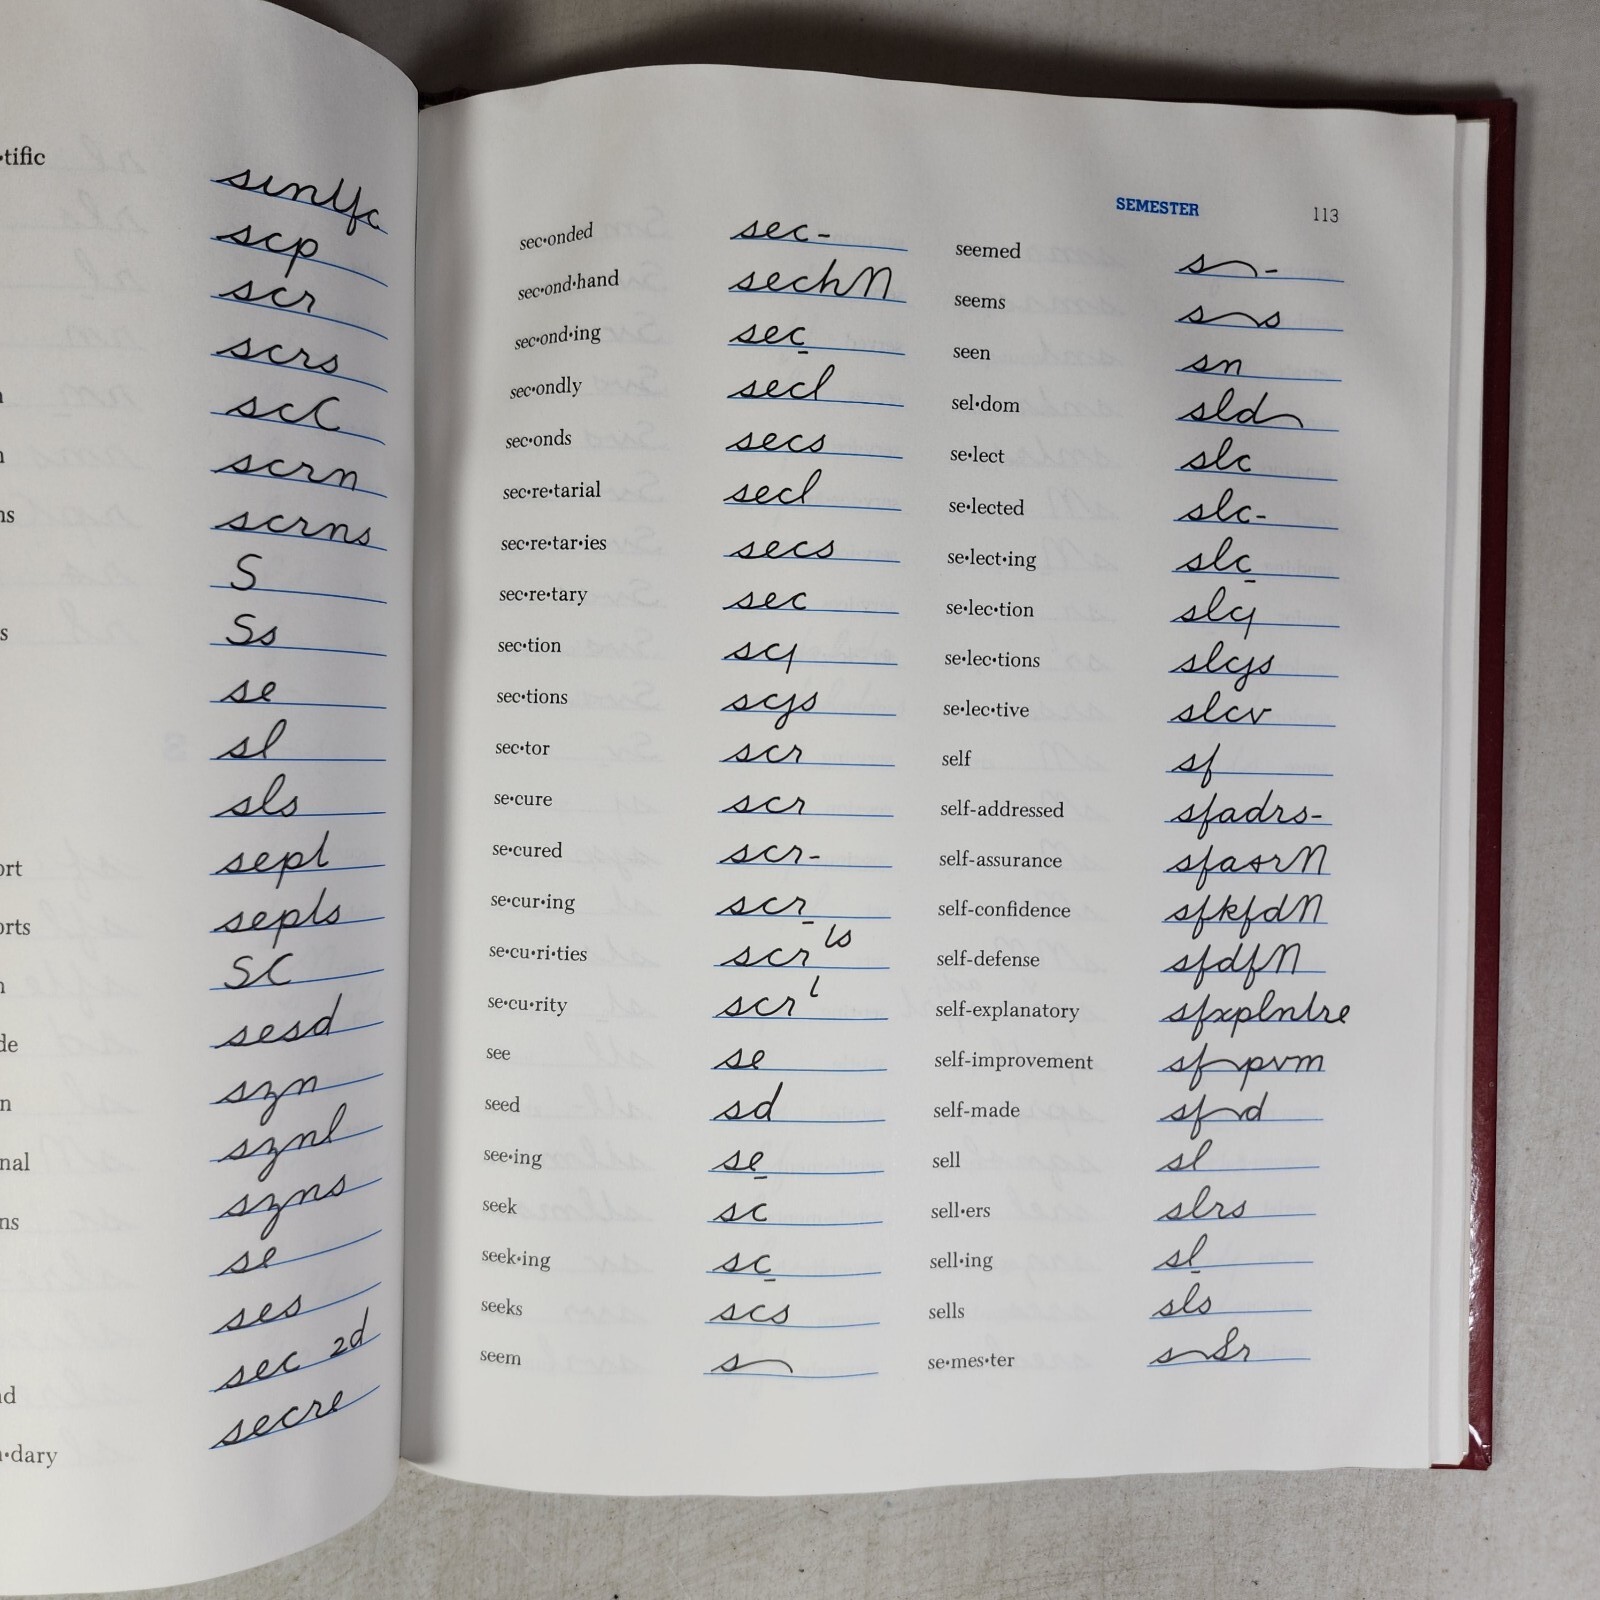 ·tific sinlfc
scp
scr
scrs
scC
scrn
ns scrns
S
s Ss
se
sl
sls
ort sepl
orts sepls
SC
de sesd
n szn
nal sznl
ns szns
se
ses
sec 2d
d secre
·dary
SEMESTER 113
sec·onded sec-
sec·ond·hand sechN
sec·ond·ing sec
sec·ondly secl
sec·onds secs
sec·re·tarial secl
sec·re·tar·ies secs
sec·re·tary sec
sec·tion scj
sec·tions scjs
sec·tor scr
se·cure scr
se·cured scr-
se·cur·ing scr
se·cu·ri·ties scr ls
se·cu·rity scr l
see se
seed sd
see·ing se
seek sc
seek·ing sc
seeks scs
seem s
seemed s -
seems s s
seen sn
sel·dom sld
se·lect slc
se·lected slc-
se·lect·ing slc
se·lec·tion slcj
se·lec·tions slcjs
se·lec·tive slcv
self sf
self-addressed sfadrs-
self-assurance sfasrN
self-confidence sfkfdN
self-defense sfdfN
self-explanatory sfxplnlre
self-improvement sf pvm
self-made sf d
sell sl
sell·ers slrs
sell·ing sl
sells sls
se·mes·ter s Sr